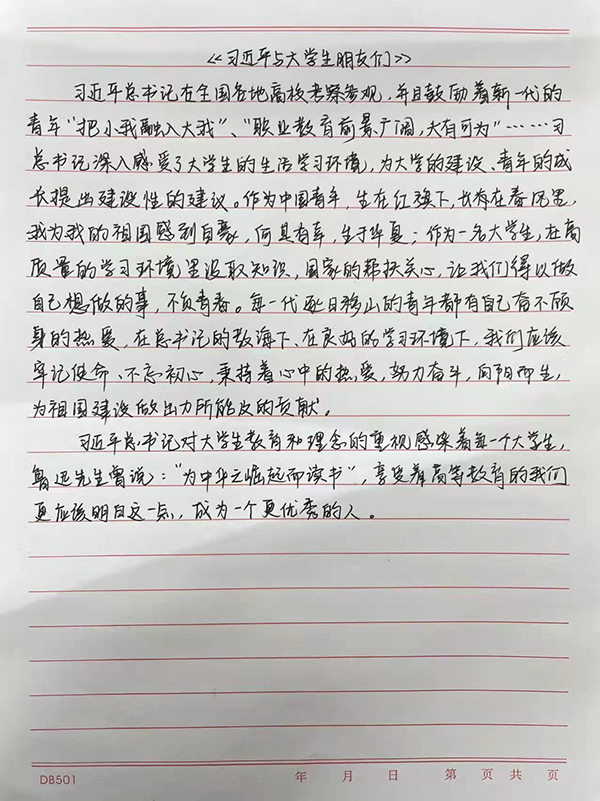 《习近平与大学生朋友们》
习近平总书记在全国各地高校考察参观，并且鼓励着新一代的
青年“把小我融入大我”、“职业教育前景广阔，大有可为”……习
总书记深入感受了大学生的生活学习环境，为大学的建设、青年的成
长提出建设性的建议。作为中国青年，生在红旗下，长存在春风里，
我为我的祖国感到自豪，何其有幸，生于华夏；作为一名大学生，在高
质量的学习环境里汲取知识，国家的帮扶关心，让我们得以做
自己想做的事，不负青春。每一代逐日移山的青年都有自己奋不顾
身的热爱，在总书记的教诲下、在良好的学习环境下，我们应该
牢记使命、不忘初心，秉持着心中的热爱，努力奋斗，向阳而生，
为祖国建设做出力所能及的贡献。
习近平总书记对大学生教育和理念的重视感染着每一个大学生，
鲁迅先生曾说：“为中华之崛起而读书”，享受着高等教育的我们
更应该明白这一点，成为一个更优秀的人。
DB501 年 月 日 第 页 共 页